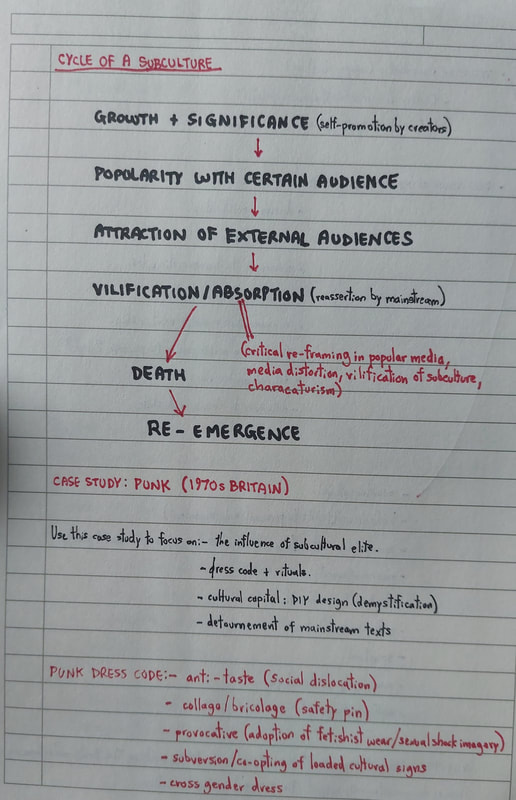 CYCLE OF A SUBCULTURE
GROWTH + SIGNIFICANCE (self-promotion by creators)
POPULARITY WITH CERTAIN AUDIENCE
ATTRACTION OF EXTERNAL AUDIENCES
VILIFICATION/ABSORPTION (reassertion by mainstream)
(critical re-framing in popular media,
media distortion, vilification of subculture,
characaturism)
DEATH
RE-EMERGENCE
CASE STUDY: PUNK (1970s BRITAIN)
Use this case study to focus on:- the influence of subcultural elite.
- dress code + rituals.
- cultural capital: DIY design (demystification)
- detournement of mainstream texts
PUNK DRESS CODE:- anti-taste (social dislocation)
- collage/bricolage (safety pin)
- provocative (adoption of fetishist wear/sexual shock imagery)
- subversion/co-opting of loaded cultural signs
- cross gender dress